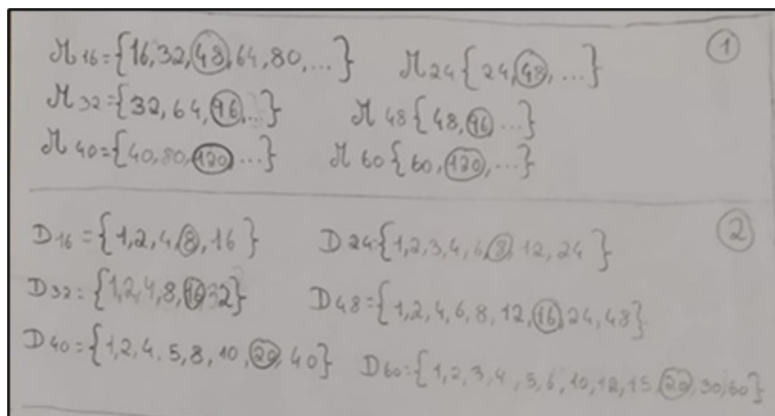 1
M16={16,32,48,64,80,...} M24{24,48,...}
M32={32,64,96,...} M48{48,96...}
M40={40,80,120,...} M60{60,120,...}
2
D16={1,2,4,8,16} D24{1,2,3,4,6,8,12,24}
D32={1,2,4,8,16,32} D48={1,2,4,6,8,12,16,24,48}
D40={1,2,4,5,8,10,20,40} D60={1,2,3,4,5,6,10,12,15,20,30,60}